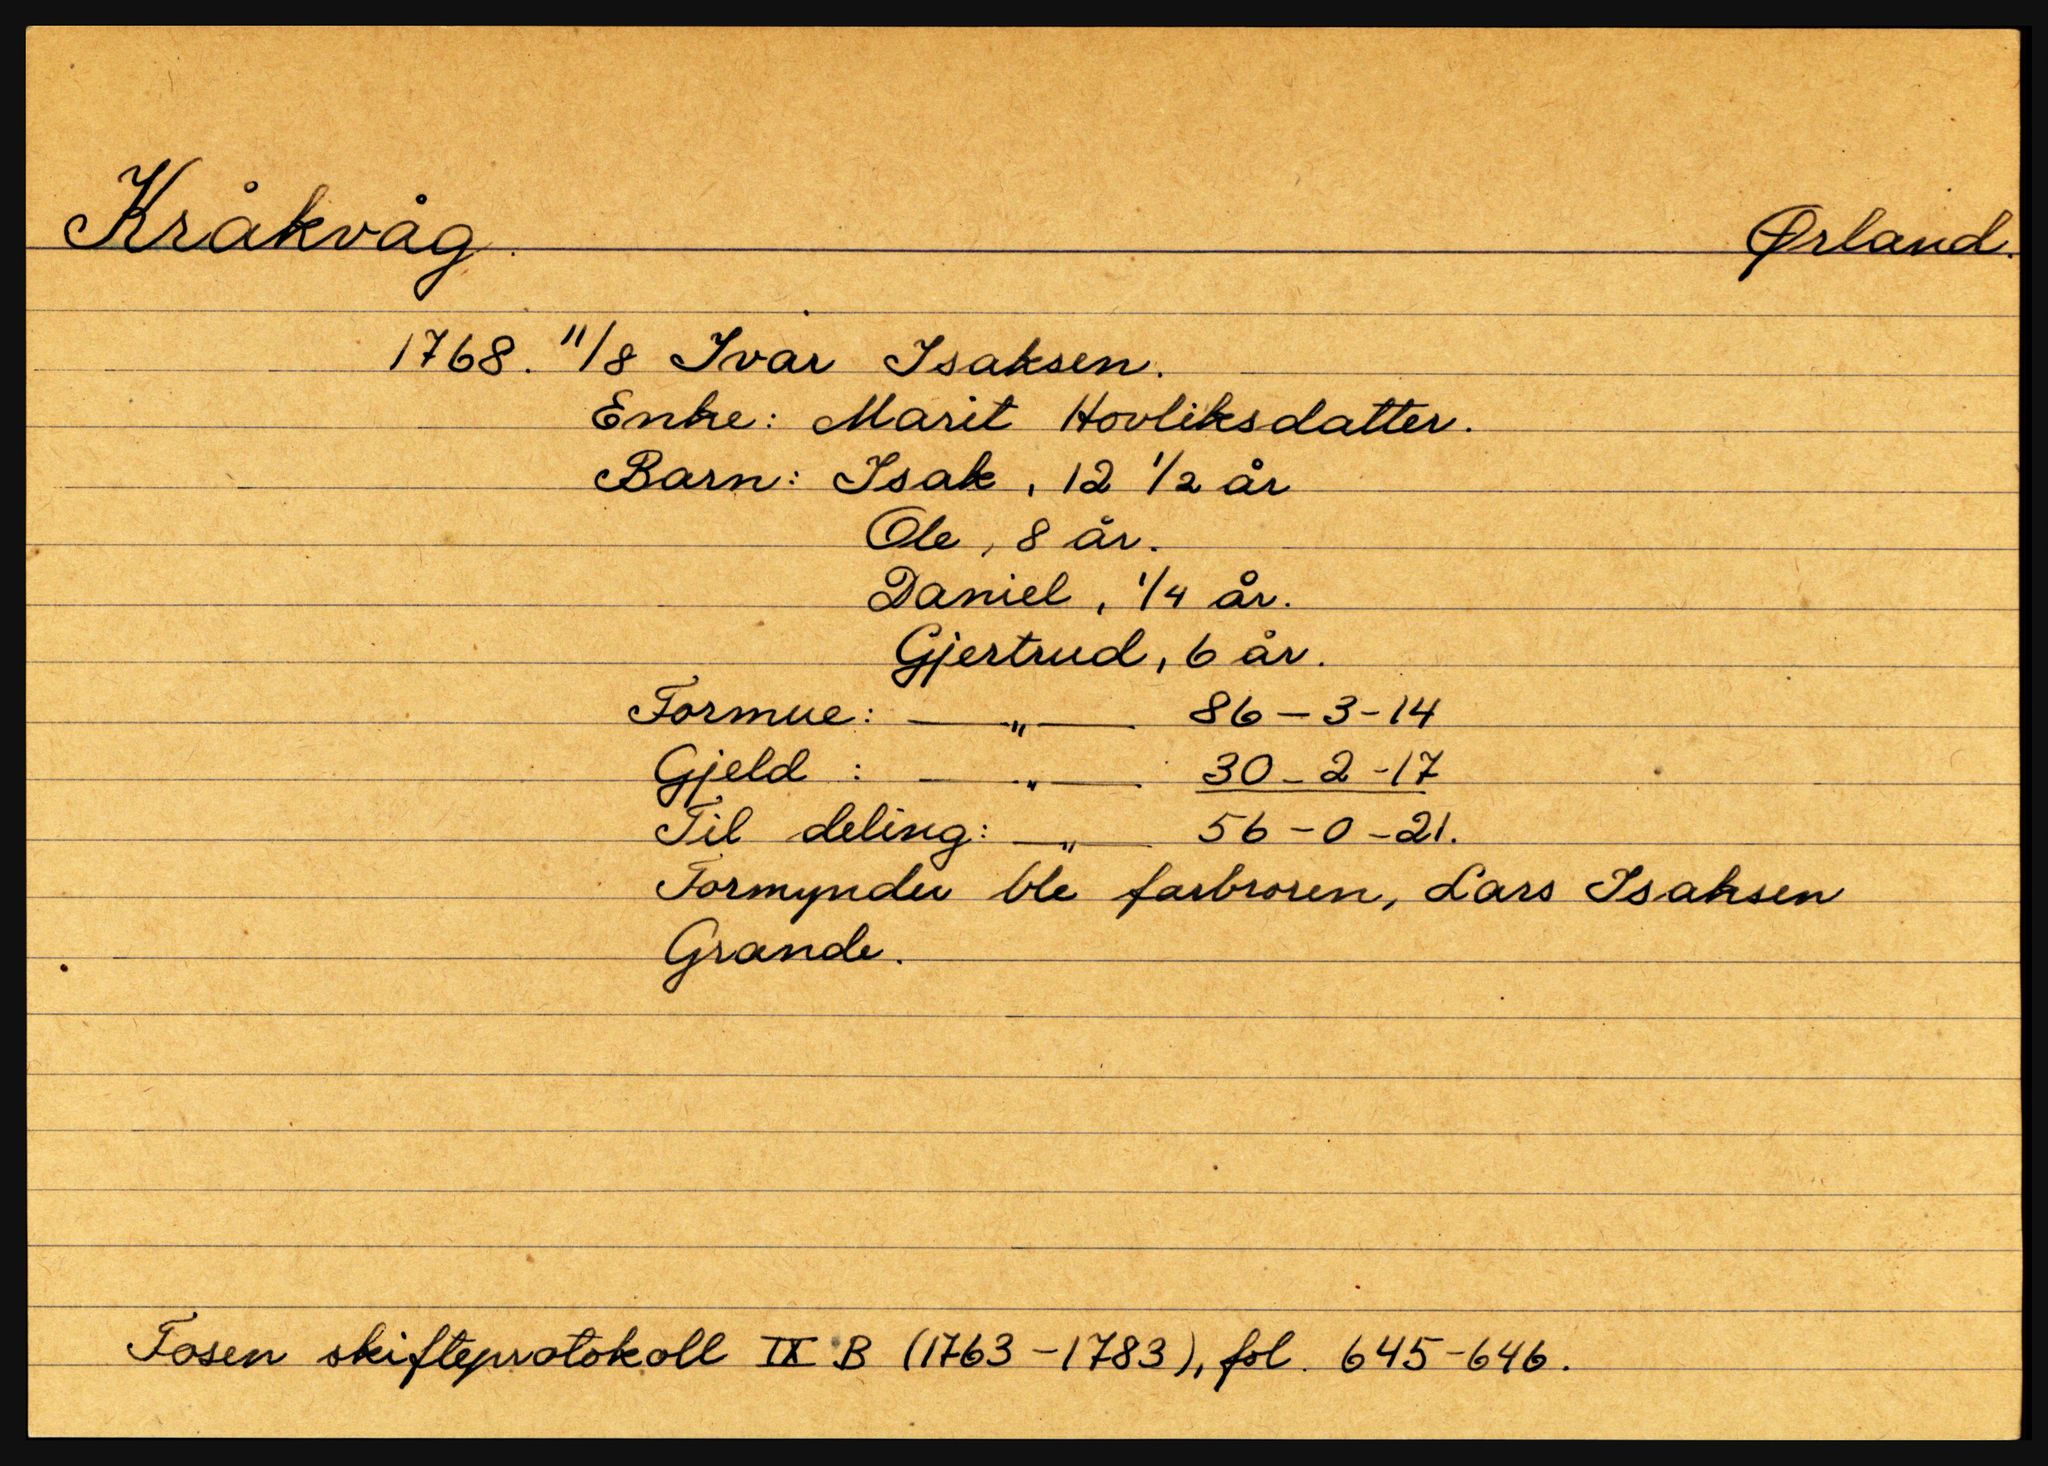 Kråkvåg. Ørland.
1768. 11/8 Ivar Isaksen.
Enke: Marit Hovliksdatter.
Barn: Isak, 12 1/2 år
Ole, 8 år.
Daniel, 1/4 år.
Gjertrud, 6 år.
Formue: — „ — 86 - 3 - 14
Gjeld : — „ — 30 - 2 - 17
Til deling: — „ — 56 - 0 - 21.
Formynder ble farbroren, Lars Isaksen
Grande.
Fosen skifteprotokoll IX B (1763-1783), fol. 645-646.